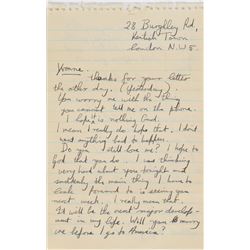 28 Burghley Rd,
Kentish Town
London N.W.5.
Yvonne,
thanks for your letter
the other day. (Yesterday).
You worry me with the
you cannot tell me on the phone.
I hope it is nothing bad.
I mean I really do hope that. I don't
want anything bad to happen.
Do you still love me? I hope to
God that you do. I was thinking
very hard about you tonight and
suddenly the main thing I have to
look forward to is seeing you
next week. I really mean that.
It'll be the next major develop-
ment in my life. Will you marry
me before I go to America?